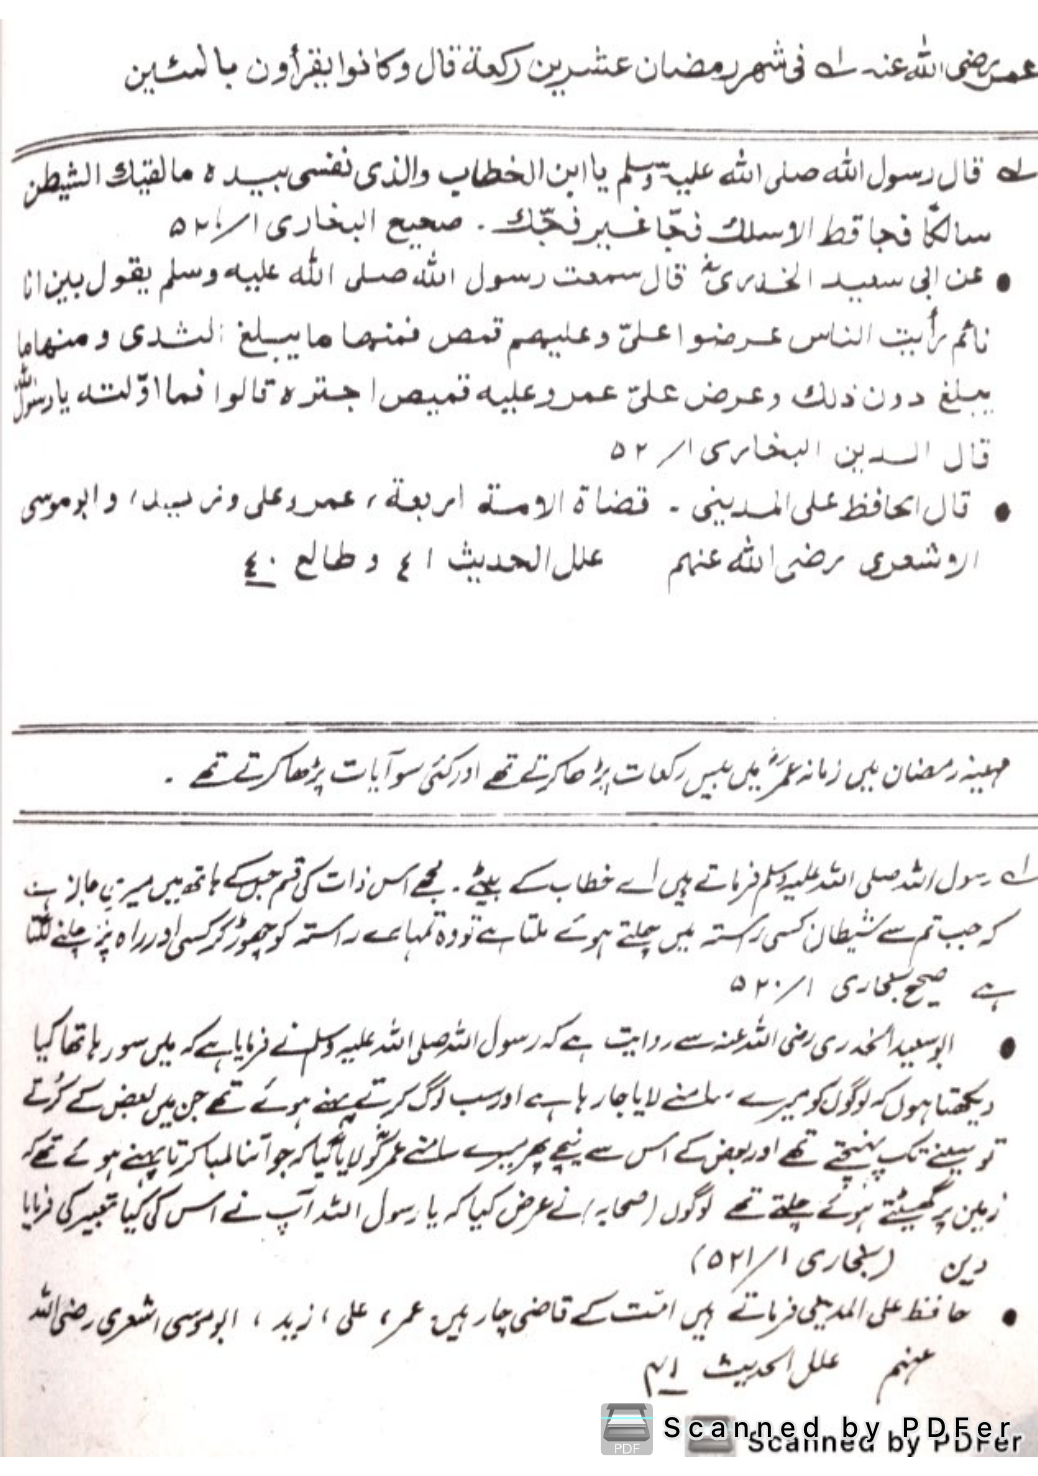 عمر رضی الله عنه لہ فی شهر رمضان عشرین رکعة قال وکانوا یقرأون بالمئین
لہ قال رسول الله صلی الله علیه وسلم یا ابن الخطاب والذی نفسی بیده مالقیك الشیطن
سالکًا فجا قط الاسلك فجّا غیر فجّك ۔ صحیح البخاری ۱/
• عن ابی سعید الخدری قال سمعت رسول الله صلی الله علیه وسلم یقول بین انا
نائم رأیت الناس عرضوا علیّ وعلیهم قمص فمنها ما یبلغ الثدی ومنها ما
یبلغ دون ذلك وعرض علیّ عمر وعلیه قمیص اجتره قالوا فما اوّلته یا رسول الله
قال الدین البخاری ۱/ ۵۲
• قال الحافظ علی المدینی ۔ قضاة الامة اربعة، عمر وعلی وزید، وابوموسی
الاشعری رضی الله عنهم علل الحدیث ٤١ وطالع ٤٠
مہینہ رمضان میں زمانہ عمرؓ میں بیس رکعات پڑھا کرتے تھے اور کئی سو آیات پڑھا کرتے تھے ۔
لہ رسول اللہ صلی اللہ علیہ وسلم فرماتے ہیں اے خطاب کے بیٹے ۔ مجھے اس ذات کی قسم جس کے ہاتھ میں میری جان ہے
کہ جب تم سے شیطان کسی راستہ میں چلتے ہوئے ملتا ہے تو وہ تمہارے راستہ کو چھوڑ کر کسی اور راہ پر چلنے لگتا
ہے صحیح بخاری ۱/۵۲۰
• ابوسعید الخدری رضی اللہ عنہ سے روایت ہے کہ رسول اللہ صلی اللہ علیہ وسلم نے فرمایا ہے کہ میں سو رہا تھا کیا
دیکھتا ہوں کہ لوگوں کو میرے سامنے لایا جا رہا ہے اور سب لوگ کرتے پہنے ہوئے تھے جن میں بعض کے کُرتے
تو سینے تک پہنچتے تھے اور بعض کے اس سے نیچے پھر میرے سامنے عمرؓ کو لایا گیا کہ جو اتنا لمبا کرتا پہنے ہوئے تھے کہ
زمین پر گھسیٹتے ہوئے چلتے تھے لوگوں (صحابہ) نے عرض کیا کہ یا رسول اللہ آپ نے اس کی کیا تعبیر کی فرمایا
دین (بخاری ۱/۵۲۱)
• حافظ علی المدینی فرماتے ہیں امّت کے قاضی چار ہیں عمر، علی، زید، ابوموسی اشعری رضی اللہ
عنہم علل الحدیث ۴۱
Scanned by PDFer
PDF
Scanned by PDFer